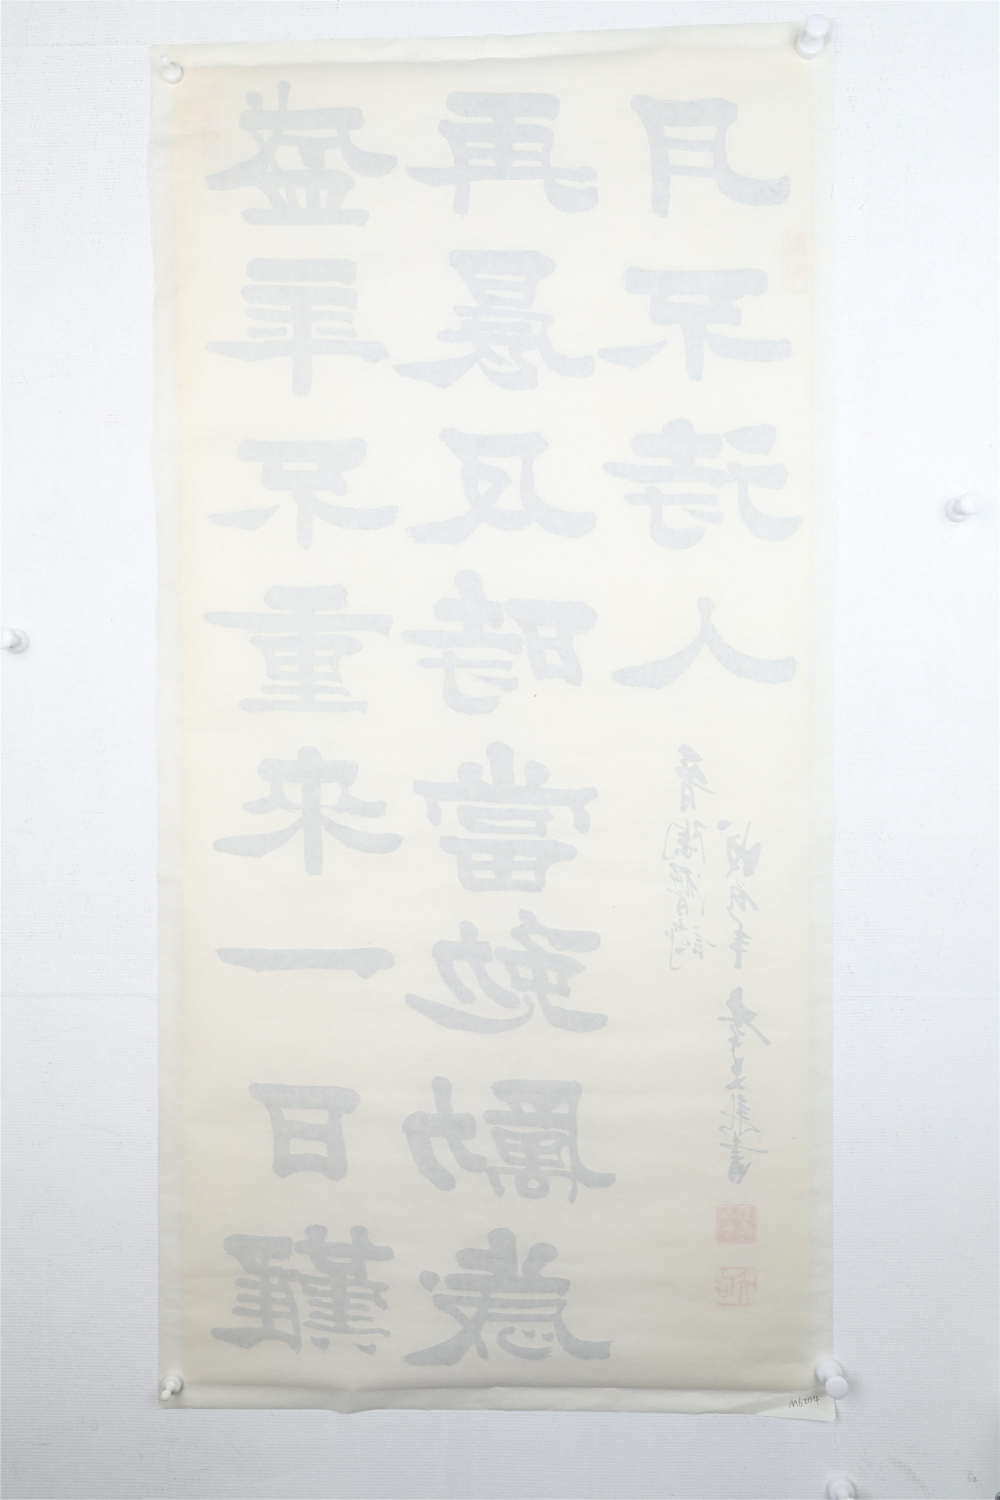 盛年不重來一日難
再晨及時當勉勵歲
月不待人
M6204